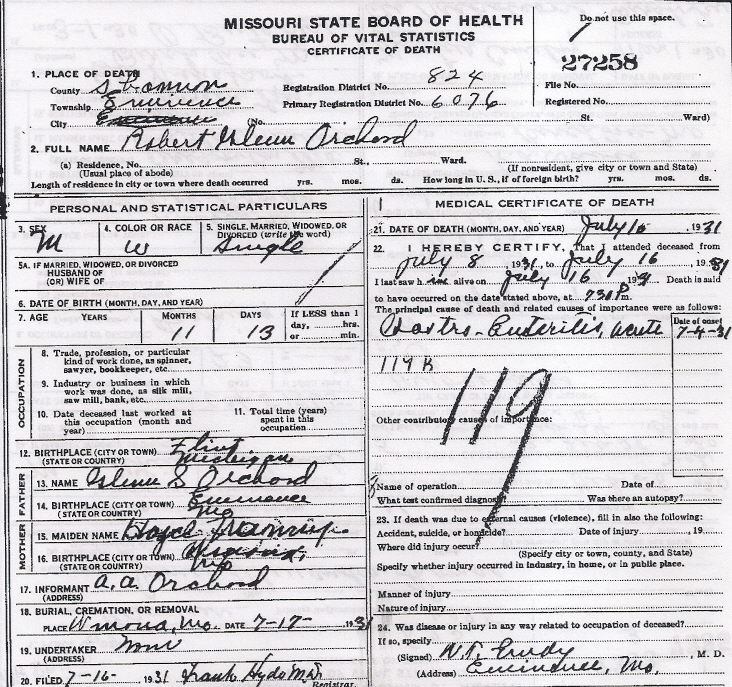 MISSOURI STATE BOARD OF HEALTH
BUREAU OF VITAL STATISTICS
CERTIFICATE OF DEATH
Do not use this space.
27258
1. PLACE OF DEATH
County Shannon Registration District No. 824 File No.
Township Eminence Primary Registration District No. 6076 Registered No.
City Eminence (No. St. Ward)
2. FULL NAME Robert Glenn Orchard
(a) Residence, No. St., Ward.
(Usual place of abode) (If nonresident, give city or town and State)
Length of residence in city or town where death occurred yrs. mos. ds. How long in U. S., if of foreign birth? yrs. mos. ds.
PERSONAL AND STATISTICAL PARTICULARS
3. SEX M
4. COLOR OR RACE W
5. SINGLE, MARRIED, WIDOWED, OR DIVORCED (write the word) Single
5A. IF MARRIED, WIDOWED, OR DIVORCED
HUSBAND OF
(OR) WIFE OF
6. DATE OF BIRTH (MONTH, DAY, AND YEAR)
7. AGE YEARS MONTHS DAYS If LESS than 1
11 13 day, hrs.
or min.
OCCUPATION
8. Trade, profession, or particular
kind of work done, as spinner,
sawyer, bookkeeper, etc.
9. Industry or business in which
work was done, as silk mill,
saw mill, bank, etc.
10. Date deceased last worked at
this occupation (month and
year)
11. Total time (years)
spent in this
occupation
12. BIRTHPLACE (CITY OR TOWN) Flint
(STATE OR COUNTRY) Michigan
FATHER
13. NAME Glenn S Orchard
14. BIRTHPLACE (CITY OR TOWN) Eminence
(STATE OR COUNTRY) Mo
MOTHER
15. MAIDEN NAME Hazel
16. BIRTHPLACE (CITY OR TOWN)
(STATE OR COUNTRY) Mo
17. INFORMANT A. A. Orchard
(ADDRESS)
18. BURIAL, CREMATION, OR REMOVAL
PLACE Winona, Mo. DATE 7-17- 1931
19. UNDERTAKER
(ADDRESS)
20. FILED 7-16- 1931 Frank Hyde M.D.
Registrar.
MEDICAL CERTIFICATE OF DEATH
21. DATE OF DEATH (MONTH, DAY, AND YEAR) July 16, 1931
22. I HEREBY CERTIFY, That I attended deceased from
July 8, 1931, to July 16, 1931
I last saw him alive on July 16, 1931 Death is said
to have occurred on the date stated above, at 7:30 P m.
The principal cause of death and related causes of importance were as follows:
Gastro-Enteritis, acute
Date of onset
7-4-31
119 B
119
Other contributory causes of importance:
Name of operation Date of
What test confirmed diagnosis Was there an autopsy?
23. If death was due to external causes (violence), fill in also the following:
Accident, suicide, or homicide? Date of injury 19
Where did injury occur?
(Specify city or town, county, and State)
Specify whether injury occurred in industry, in home, or in public place.
Manner of injury
Nature of injury
24. Was disease or injury in any way related to occupation of deceased?
If so, specify
(Signed) W.T. Eudy, M. D.
(Address) Eminence, Mo.